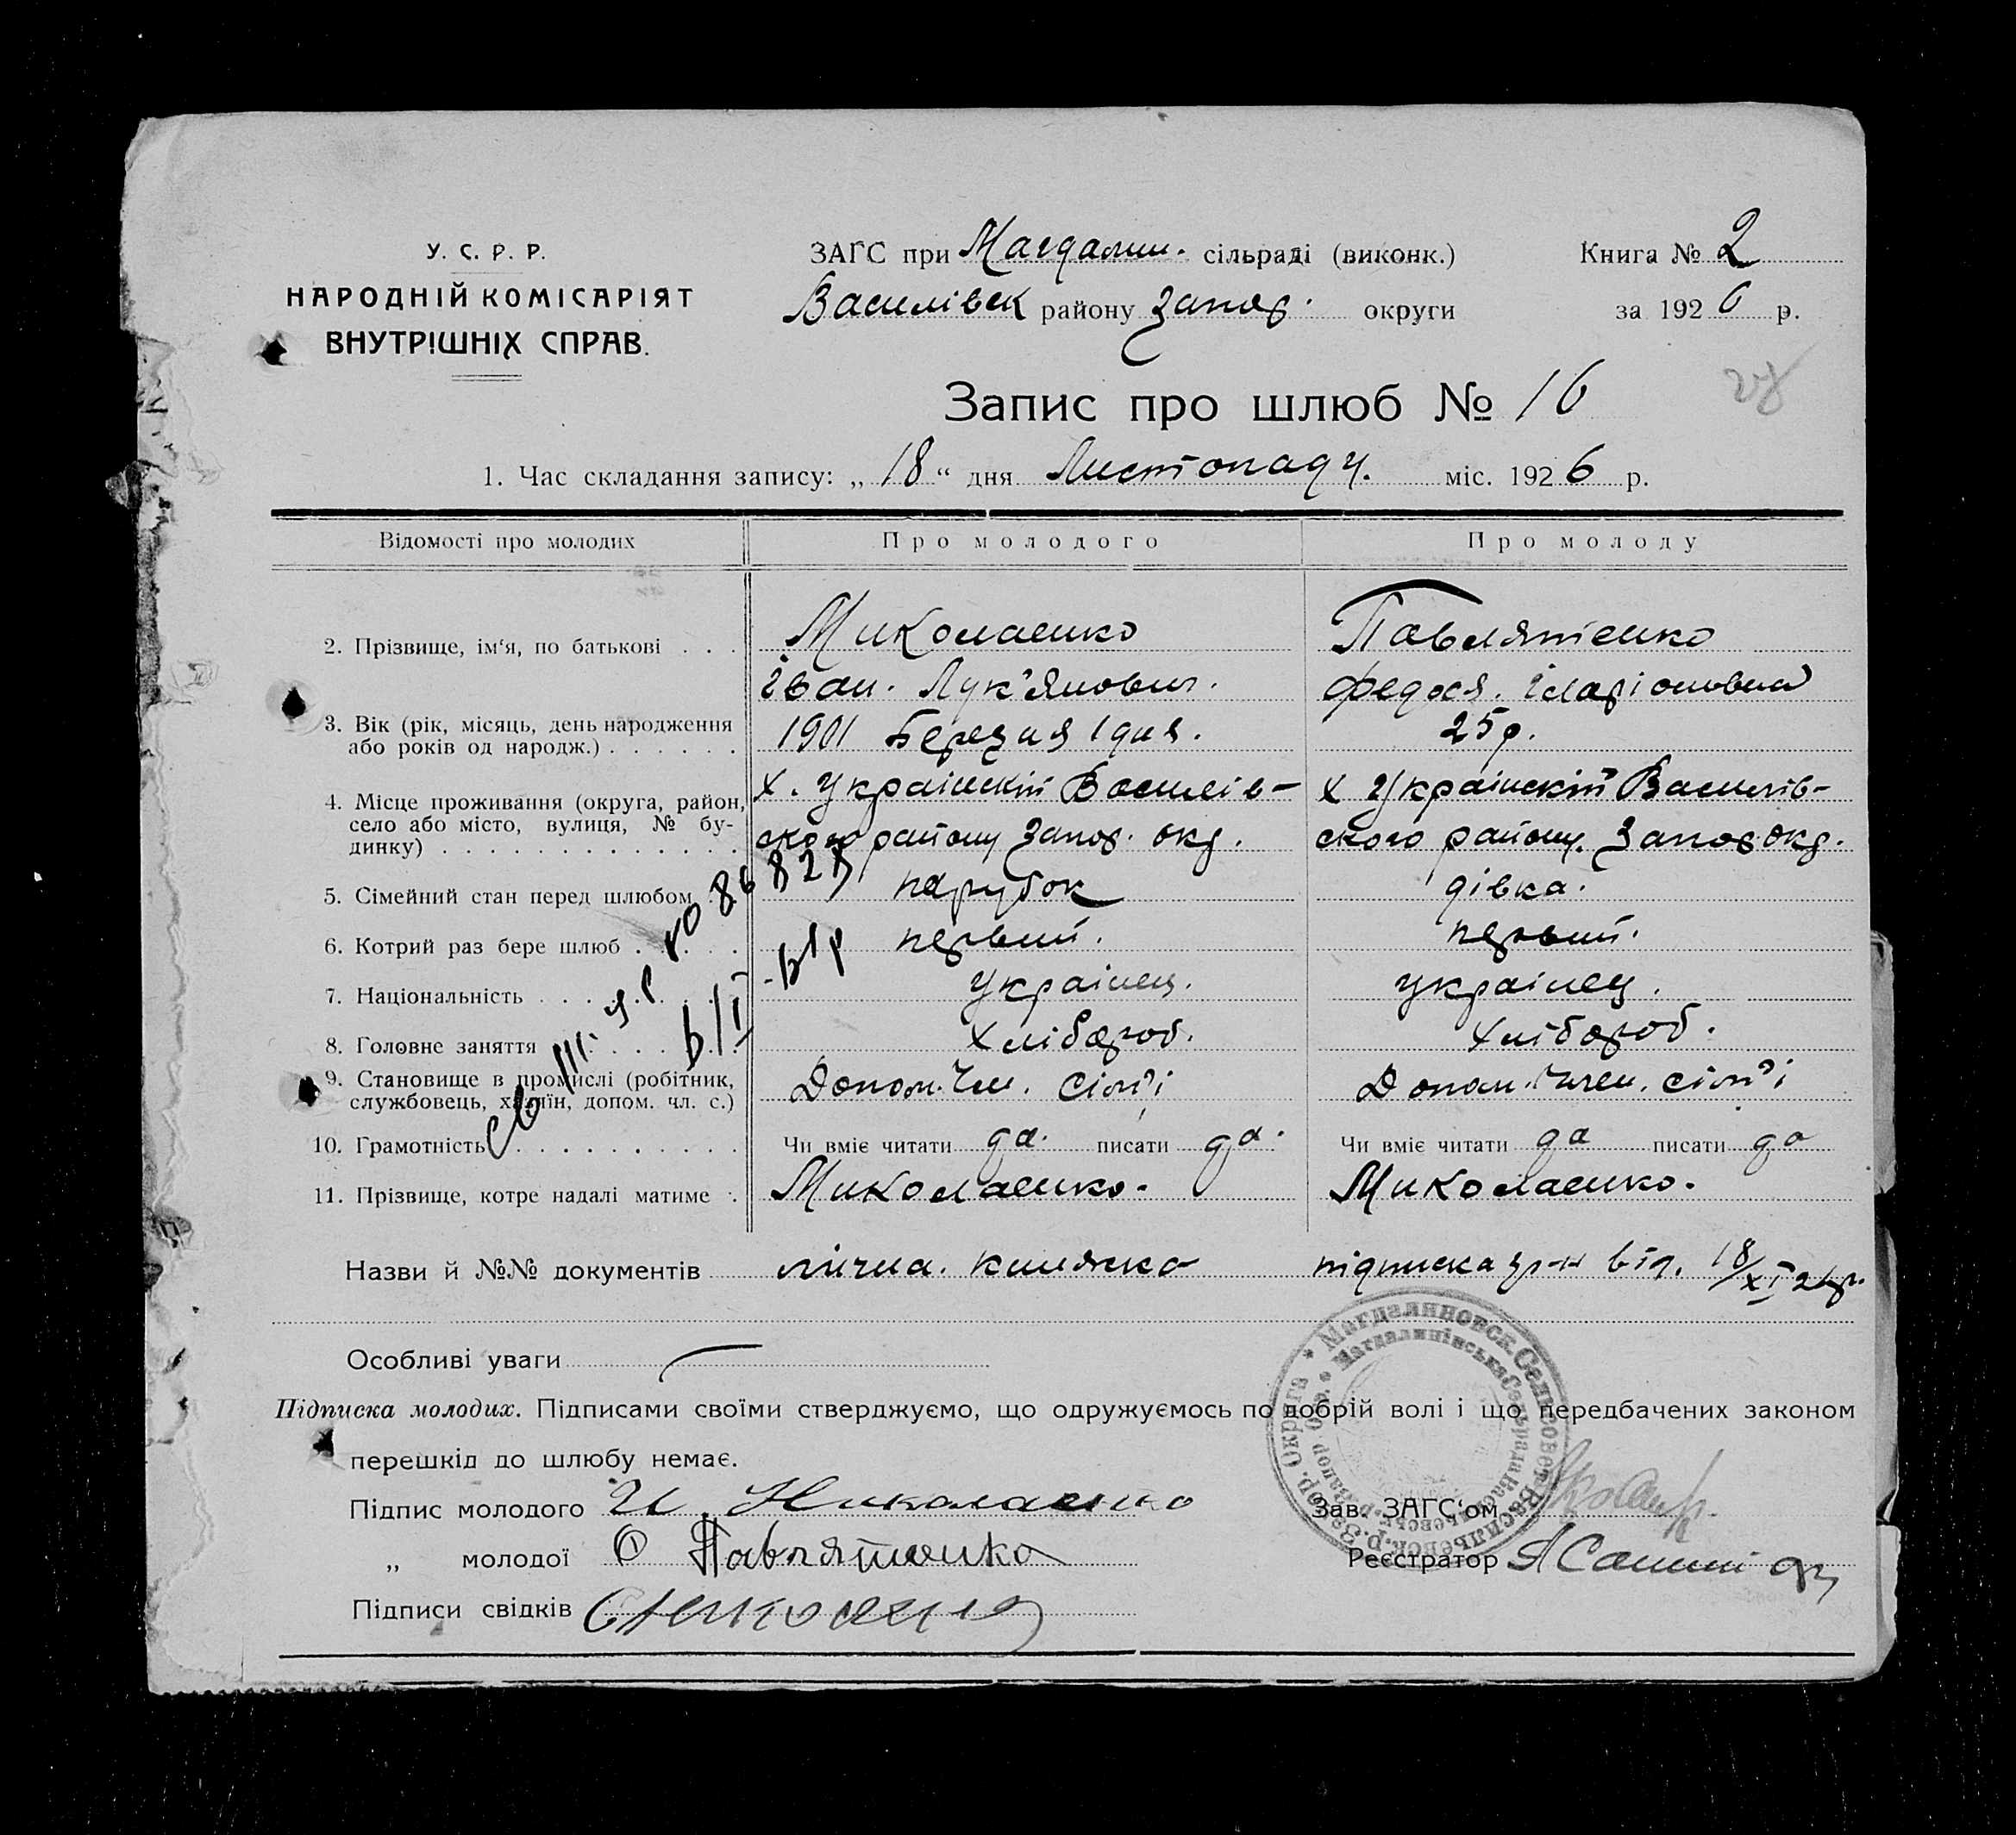 У. С. Р. Р.
НАРОДНІЙ КОМІСАРІЯТ
ВНУТРІШНІХ СПРАВ.
ЗАГС при Магдалин. сільраді (виконк.)
Василівск району Запор. округи
Книга № 2
за 1926 р.
Запис про шлюб № 16
1. Час складання запису: „18“ дня Листопаду. міс. 1926 р.
Відомості про молодих Про молодого Про молоду
2. Прізвище, ім‘я, по батькові . . . Миколаенко Павлятенко
Іван. Лук'янович. Федося. Іларіоновна
3. Вік (рік, місяць, день народження 1901 Березня 1 дня. 25 р.
або років од народж.) . . . . . .
4. Місце проживання (округа, район, х. Украінскій Василів- х Украінскій Василів-
село або місто, вулиця, № бу- ского району Запор. окр. ского району. Запор окр.
динку) . . . . . . . . . . . . .
5. Сімейний стан перед шлюбом . парубок дівка.
6. Котрий раз бере шлюб . . . . . первий. первий.
7. Національність . . . . . . . . украінец. украінец.
8. Головне заняття . . . . . . . хлібороб. хлібороб.
9. Становище в промислі (робітник, Допом. Чл. сім'і Допом. член. сім'і
службовець, хазяїн, допом. чл. с.)
10. Грамотність . . . . . . . . . . Чи вміє читати да. писати да. Чи вміє читати да писати да
11. Прізвище, котре надалі матиме . Миколаенко. Миколаенко.
Назви й №№ документів лична. книжка підписка від. 18/XI 26р.
Особливі уваги
Підписка молодих. Підписами своїми стверджуємо, що одружуємось по добрій волі і що передбачених законом
перешкід до шлюбу немає.
Підпис молодого И. Николаенко
„ молодої Ф Павлятенко
Підписи свідків
Зав. ЗАГС‘ом
Реєстратор
* Магдалиновск. Сельсовет Васильевск. р. Запор. Округа
Магдалинівська Сельрада Васильевськ. р. Запор. Окр.